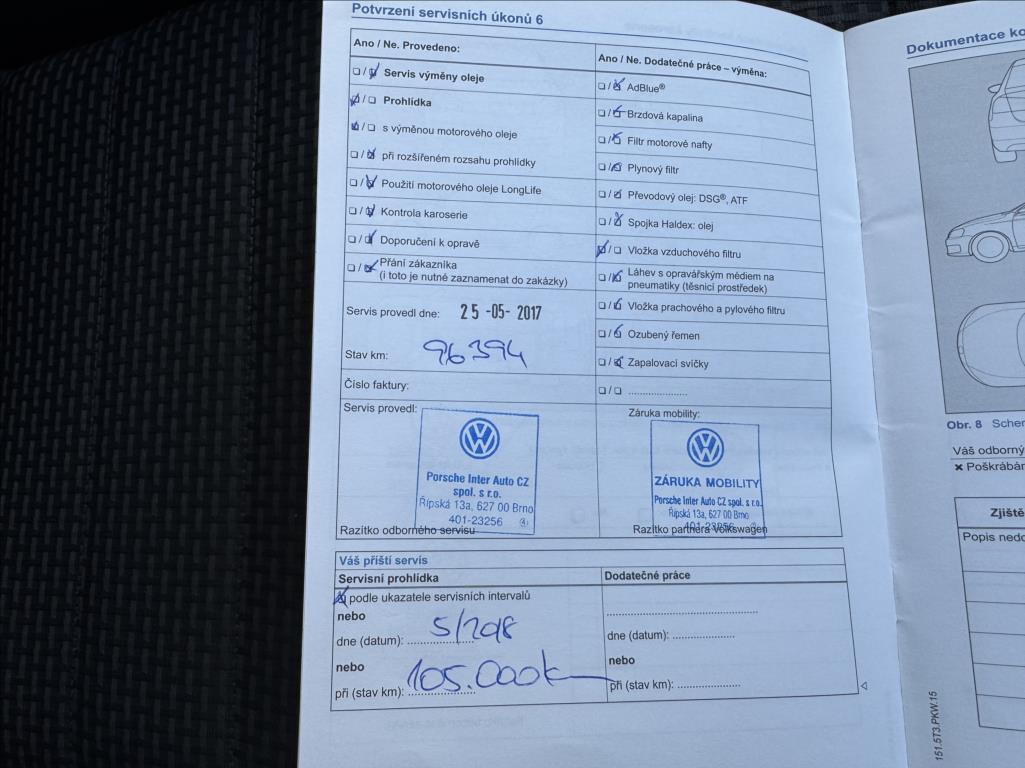 Potvrzení servisních úkonů 6
Ano / Ne. Provedeno:
Servis výměny oleje
Prohlídka
s výměnou motorového oleje
při rozšířeném rozsahu prohlídky
Použití motorového oleje LongLife
Kontrola karoserie
Doporučení k opravě
Přání zákazníka
(i toto je nutné zaznamenat do zakázky)
Servis provedl dne: 25 -05- 2017
Stav km: 96394
Číslo faktury:
Servis provedl:
Porsche Inter Auto CZ
spol. s r.o.
Řípská 13a, 627 00 Brno
401-23256 4
Razítko odborného servisu
Ano / Ne. Dodatečné práce – výměna:
AdBlue®
Brzdová kapalina
Filtr motorové nafty
Plynový filtr
Převodový olej: DSG®, ATF
Spojka Haldex: olej
Vložka vzduchového filtru
Láhev s opravářským médiem na
pneumatiky (těsnicí prostředek)
Vložka prachového a pylového filtru
Ozubený řemen
Zapalovací svíčky
Záruka mobility:
ZÁRUKA MOBILITY
Porsche Inter Auto CZ spol. s r.o.
Řípská 13a, 627 00 Brno
401-23256
Razítko partnera Volkswagen
Váš příští servis
Servisní prohlídka
podle ukazatele servisních intervalů
nebo
dne (datum): 5/2018
nebo
při (stav km): 105.000k
Dodatečné práce
dne (datum):
nebo
při (stav km):
Dokumentace ko
Obr. 8 Scher
Váš odborný
× Poškrábán
Zjiště
Popis nedo
151.5T3.PKW.15